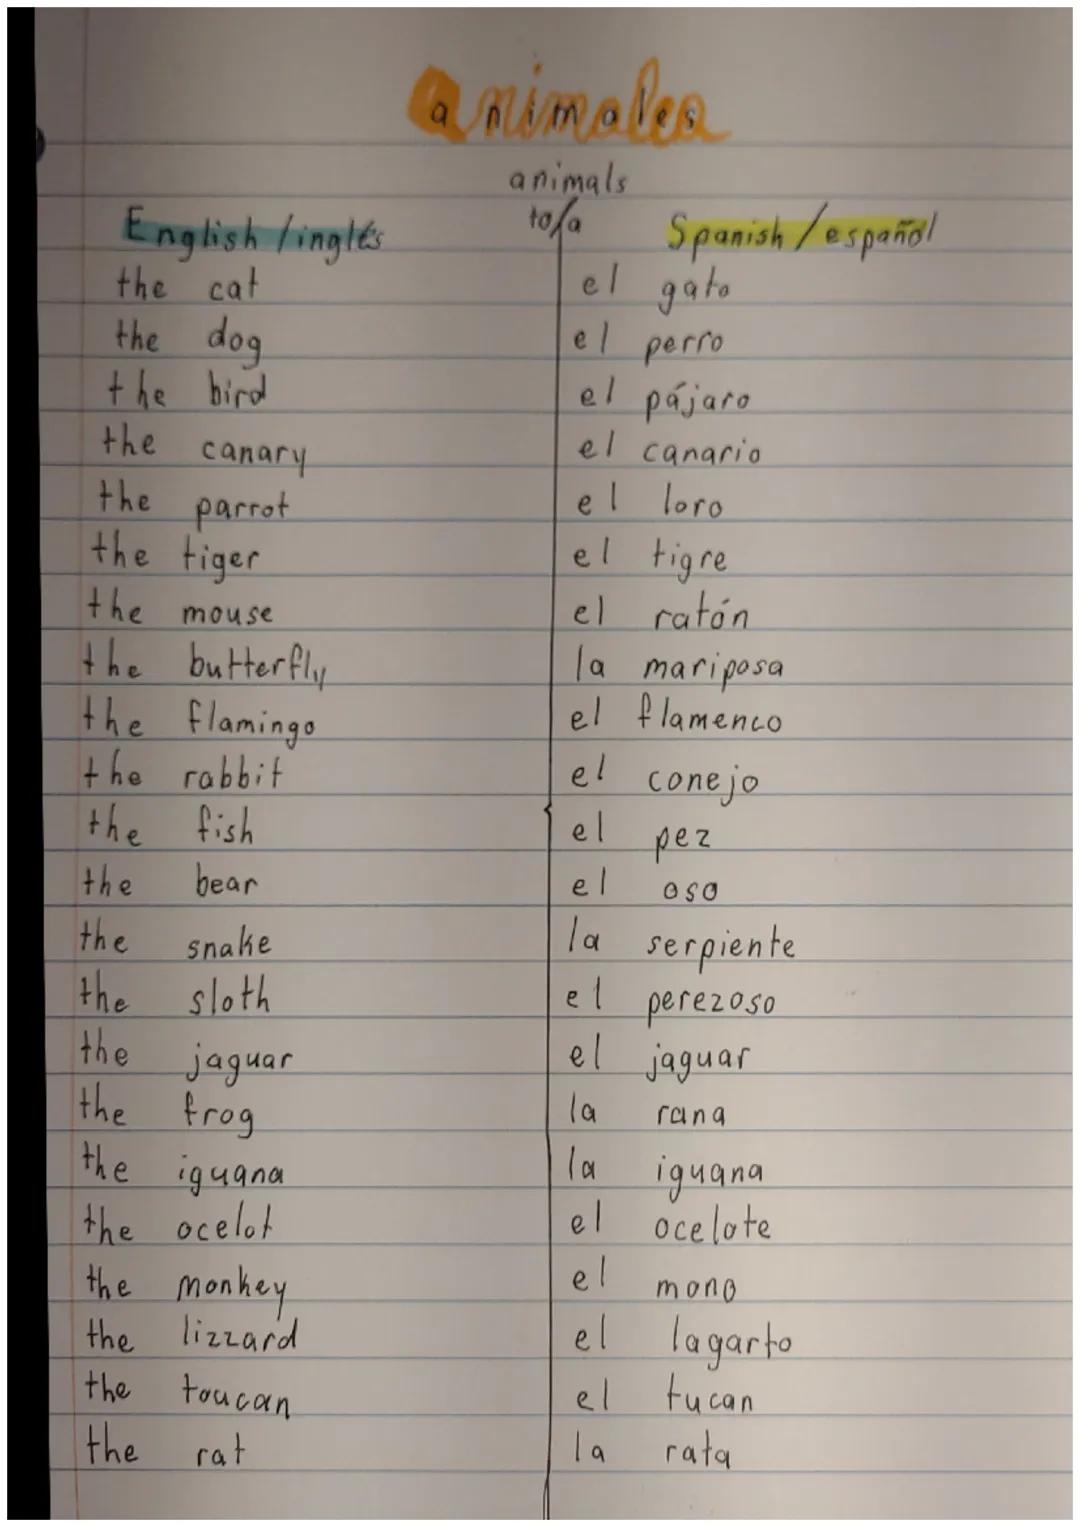 animales
animals
to/a
English/inglés Spanish/español
the cat el gato
the dog el perro
the bird el pájaro
the canary el canario
the parrot el loro
the tiger el tigre
the mouse el ratón
the butterfly la mariposa
the flamingo el flamenco
the rabbit el conejo
the fish el pez
the bear el oso
the snake la serpiente
the sloth el perezoso
the jaguar el jaguar
the frog la rana
the iguana la iguana
the ocelot el ocelote
the monkey el mono
the lizzard el lagarto
the toucan el tucan
the rat la rata